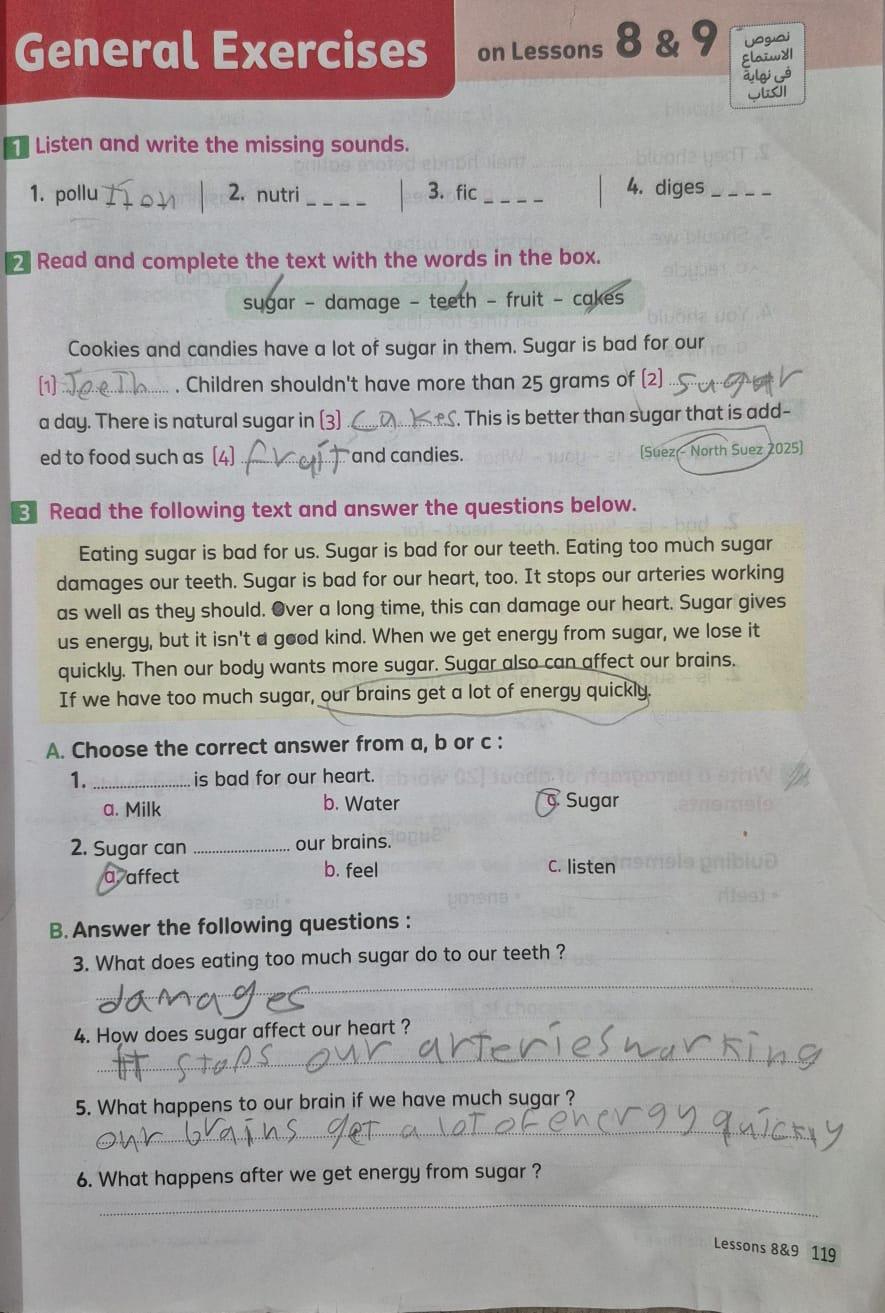 General Exercises on Lessons 8 & 9
نصوص
الاستماع
فى نهاية
الكتاب
1 Listen and write the missing sounds.
1. pollu tion | 2. nutri _ _ _ _ | 3. fic _ _ _ _ | 4. diges _ _ _ _
2 Read and complete the text with the words in the box.
sugar - damage - teeth - fruit - cakes
Cookies and candies have a lot of sugar in them. Sugar is bad for our
(1) Teeth . Children shouldn't have more than 25 grams of (2) sugar
a day. There is natural sugar in (3) Cakes. This is better than sugar that is add-
ed to food such as (4) fruit and candies. (Suez - North Suez 2025)
3 Read the following text and answer the questions below.
Eating sugar is bad for us. Sugar is bad for our teeth. Eating too much sugar
damages our teeth. Sugar is bad for our heart, too. It stops our arteries working
as well as they should. Over a long time, this can damage our heart. Sugar gives
us energy, but it isn't a good kind. When we get energy from sugar, we lose it
quickly. Then our body wants more sugar. Sugar also can affect our brains.
If we have too much sugar, our brains get a lot of energy quickly.
A. Choose the correct answer from a, b or c :
1. .................... is bad for our heart.
a. Milk b. Water c. Sugar
2. Sugar can .................... our brains.
a. affect b. feel c. listen
B. Answer the following questions :
3. What does eating too much sugar do to our teeth ?
damages
4. How does sugar affect our heart ?
It stops our arteries warking
5. What happens to our brain if we have much sugar ?
our brains get a lot of energy quickly
6. What happens after we get energy from sugar ?
Lessons 8&9 119